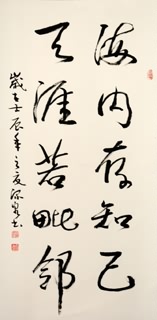 海内存知己
天涯若毗邻
岁壬辰年之夏